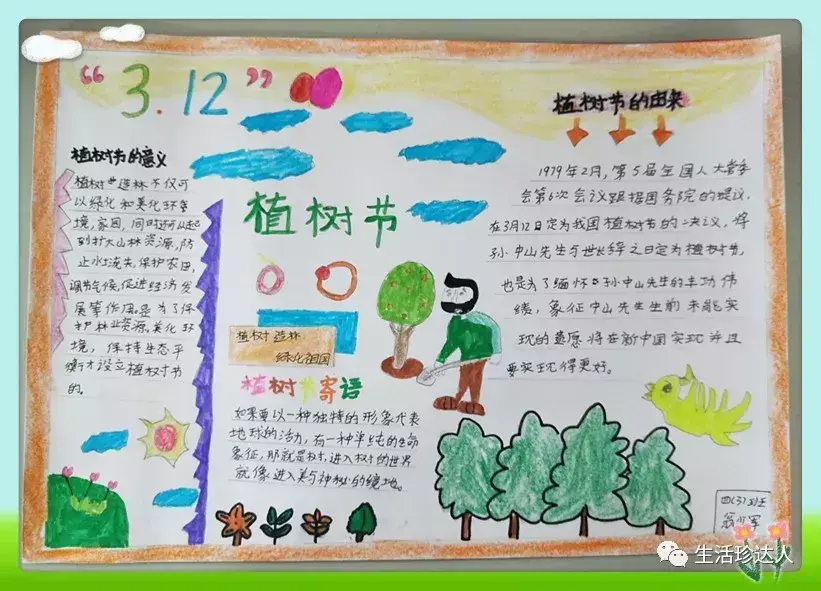 “3.12”
植树节的意义
植树造林不仅可
以绿化和美化环
境，家园，同时还可以起
到扩大山林资源，防
止水土流失，保护农田，
调节气候，促进经济发
展等作用。是为了保
护林业资源，美化环
境，保持生态平
衡才设立植树节
的。
植树节
植树造林
绿化祖国
植树节寄语
如果要以一种独特的形象代表
地球的活力，有一种单纯的生命
象征，那就是树，进入树的世界
就像进入美与神秘的境地。
植树节的由来
1979年2月，第5届全国人大常委
会第6次会议跟据国务院的提议，
在3月12日定为我国植树节的决议，将
孙中山先生与世长辞之日定为植树节，
也是为了缅怀孙中山先生的丰功伟
绩，象征中山先生生前未能实
现的意愿将在新中国实现并且
要实现得更好。
四（3）班
生活珍达人